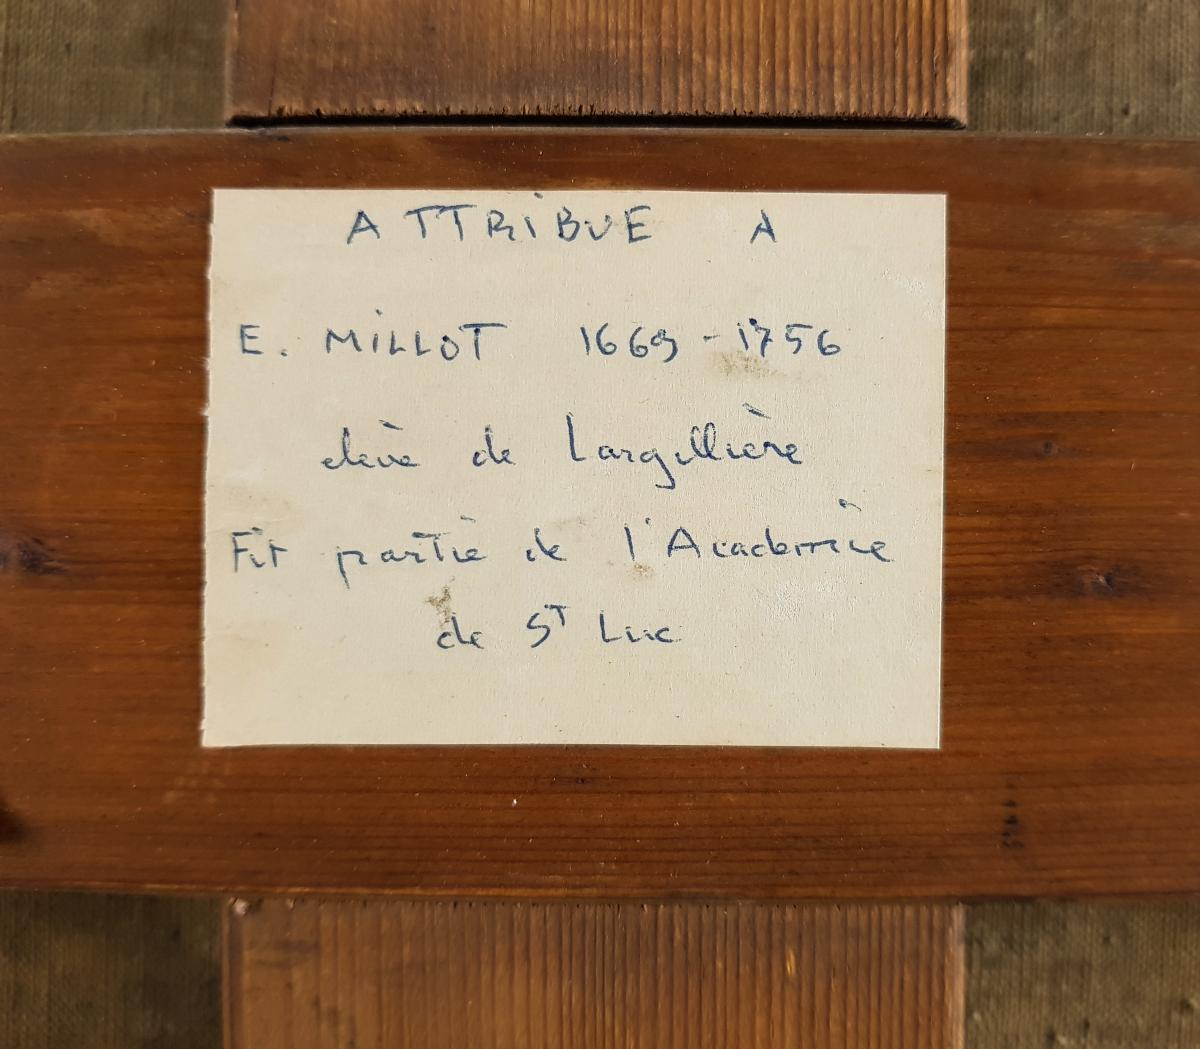 ATTRIBUE A
E. MILLOT 1669-1756
elève de Largillière
Fit partie de l'Academie
de ST Luc